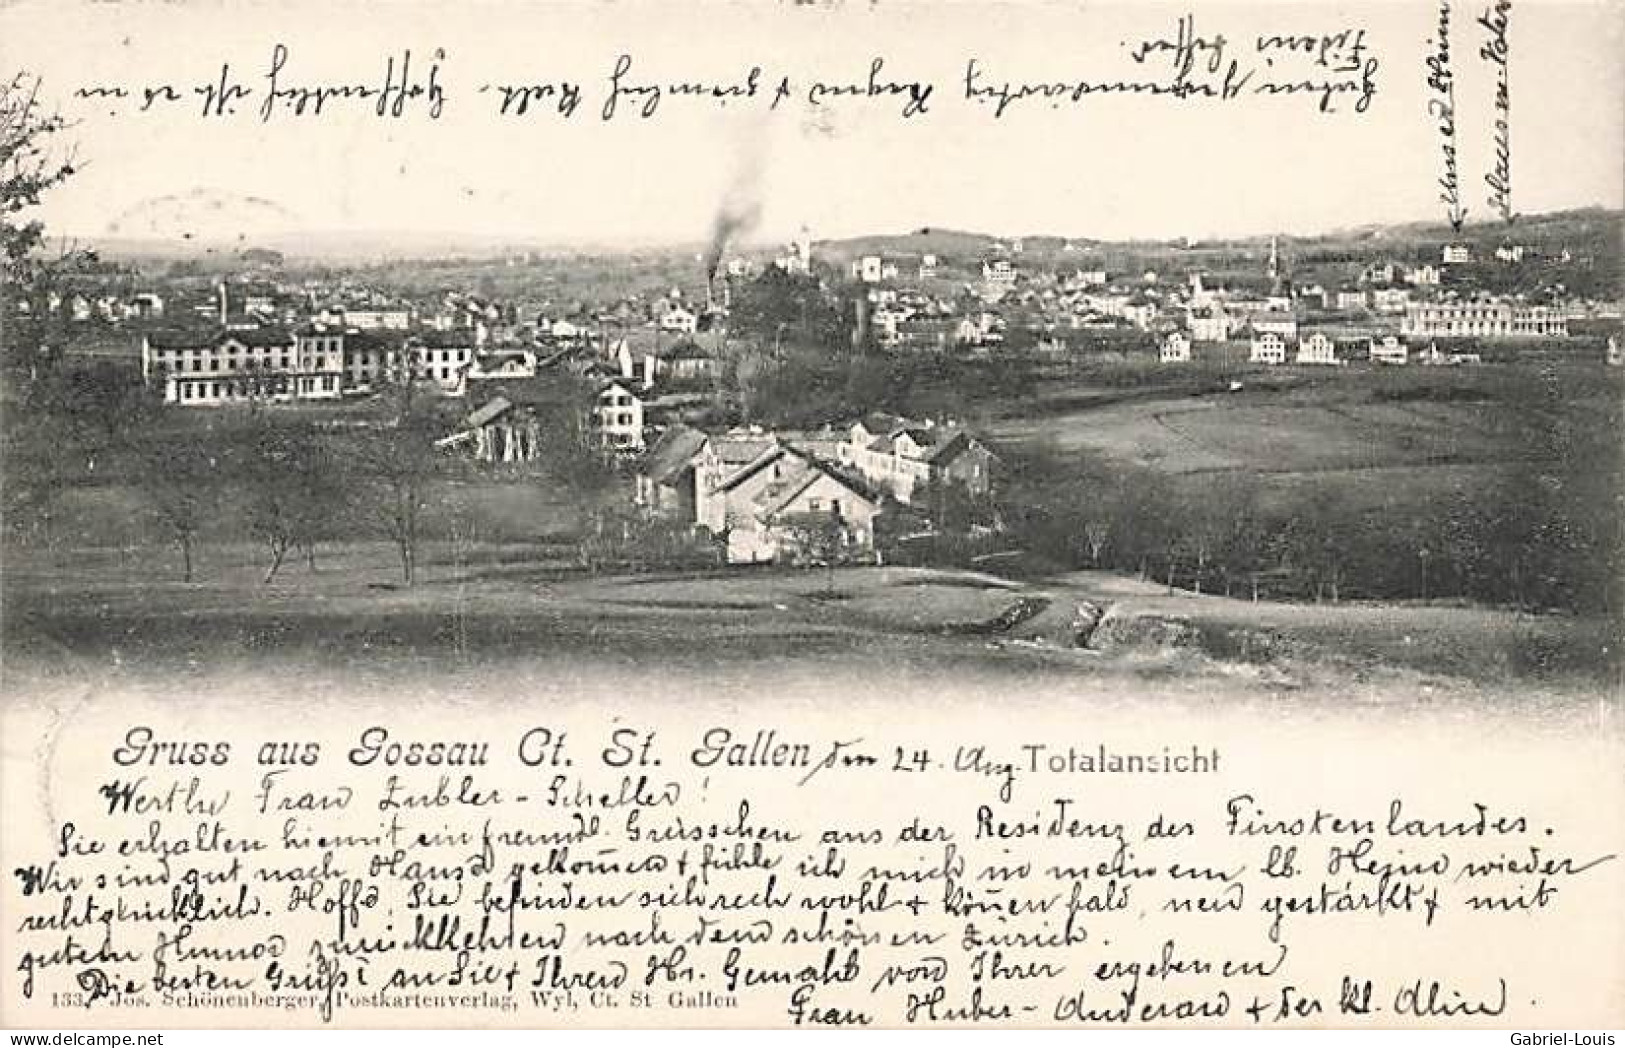 Unser Heim
Haus m. Vater
Gruss aus Gossau Ct. St. Gallen den 24. Aug. Totalansicht
Werthe Frau Zubler-Scheller!
Sie erhalten hiemit ein freundl. Grüsschen aus der Residenz des Fürstenlandes.
Wir sind gut nach Hause gekom̅en + fühle ich mich in meinem lb. Heim wieder
recht glücklich. Hoffe, Sie befinden sich recht wohl + kön̅en bald, neu gestärkt + mit
gutem Humor zurückkehren nach dem schönen Zürich.
Die besten Grüsse an Sie + Ihren Hr. Gemahl von Ihrer ergebenen
133. Jos. Schönenberger, Postkartenverlag, Wyl, Ct. St Gallen
Frau Huber- + der kl. Alin.
Hoffentlich ist es in
gegenwärtig Regen + ziemlich kalt.